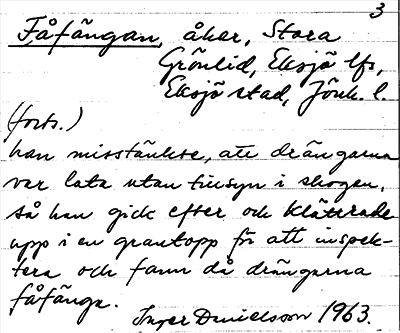 3
Fåfängan, åker, Stora
Grönlid, Eksjö lfs,
Eksjö stad, Jönk. l.
(forts.)
han misstänkte, att drängarna
var lata utan tillsyn i skogen,
så han gick efter och klättrade
upp i en grantopp för att inspek-
tera och fann då drängarna
fåfänga.
Inger Danielsson 1963.